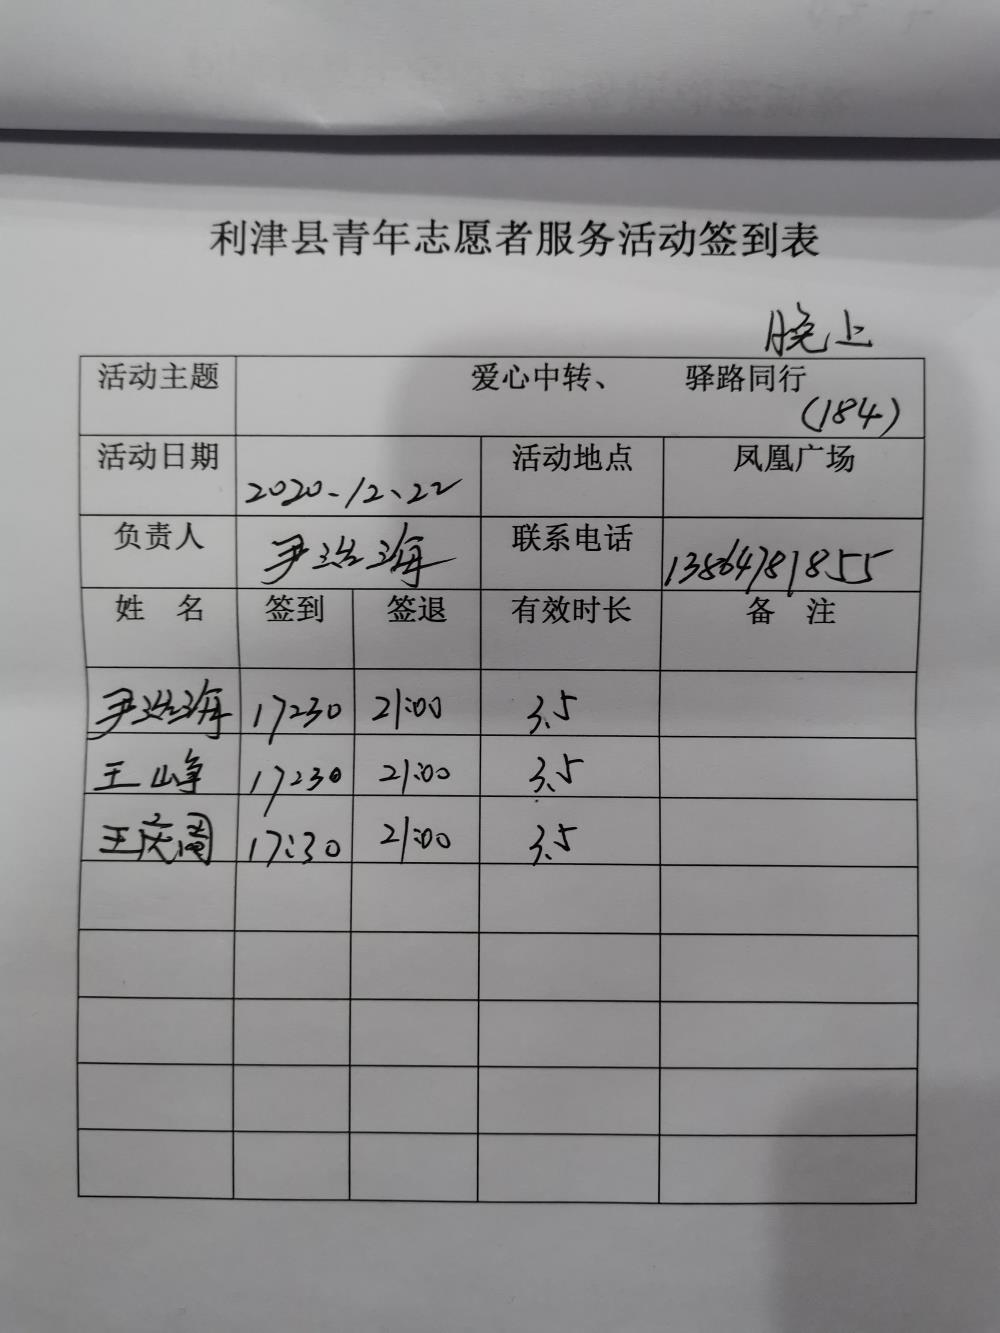 利津县青年志愿者服务活动签到表
晚上
活动主题 爱心中转、 驿路同行
(184)
活动日期 2020.12.22 活动地点 凤凰广场
负责人 尹浩海 联系电话 13864781855
姓 名 签到 签退 有效时长 备 注
尹浩海 17:30 21:00 3.5
王峰 17:30 21:00 3.5
王庆 17:30 21:00 3.5